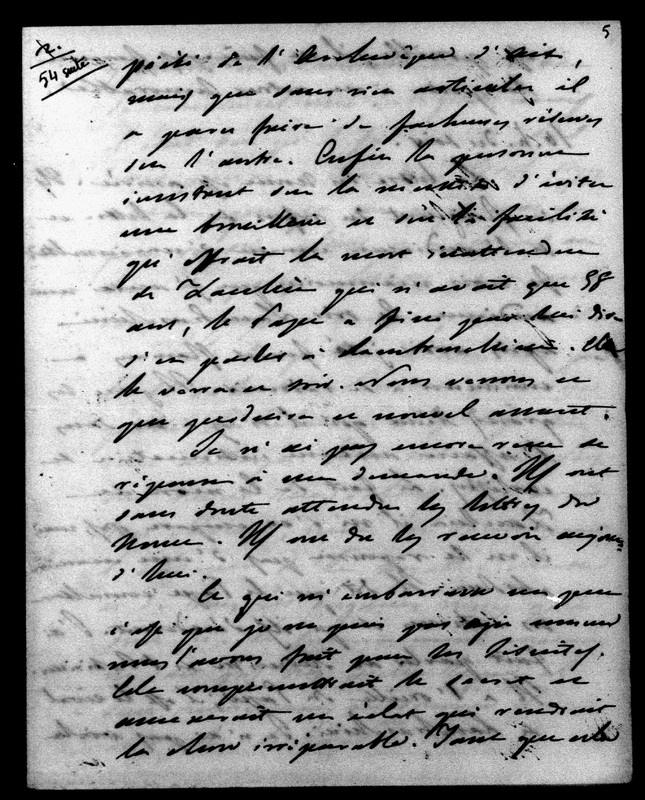 5
54 suite
piété de l'Archevêque d'Aix,
mais que sans rien articuler il
a paru faire de fâcheuses réserves
sur l'autre. Enfin la personne
insistant sur la nécessité d'éviter
une brouillerie et sur la facilité
qu'offrait la mort inattendue
de qui n'avait que 58
ans, le Pape a fini par lui dire
d'en parler à . Elle
le verra ce soir. Nous verrons ce
que produira ce nouvel assaut.
Je n'ai pas encore reçu de
réponse à ma demande. Ils ont
sans doute attendu les lettres du
Nonce. Ils ont dû les recevoir aujour=
d'hui.
Ce qui m'embarrasse un peu
c'est que je ne puis pas agir comme
nous l'avons fait pour les Jésuites.
Cela compromettrait le secret et
amènerait un éclat qui rendrait
la chose irréparable. Tant que cela